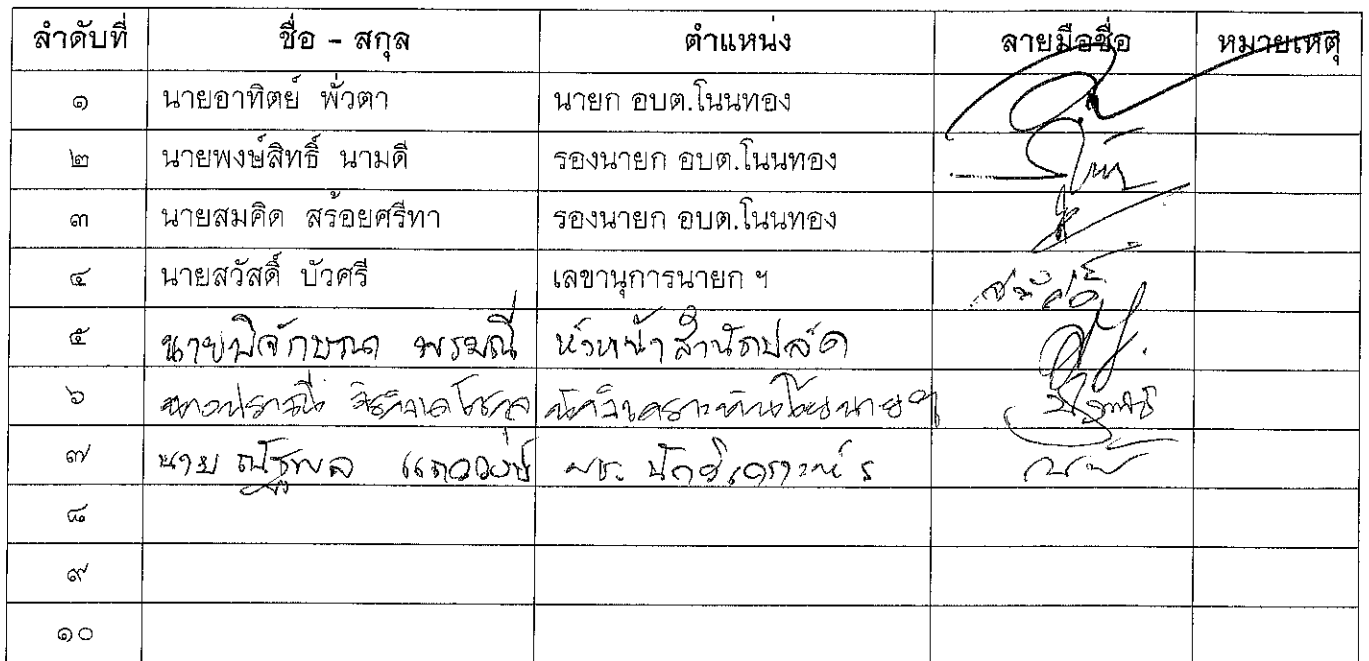 ลำดับที่ ชื่อ - สกุล ตำแหน่ง ลายมือชื่อ หมายเหตุ
๑ นายอาทิตย์ พั่วตา นายก อบต.โนนทอง
๒ นายพงษ์สิทธิ์ นามดี รองนายก อบต.โนนทอง
๓ นายสมคิด สร้อยศรีทา รองนายก อบต.โนนทอง
๔ นายสวัสดิ์ บัวศรี เลขานุการนายก ฯ
๕ นายพิจักษณา พรมณี หัวหน้าสำนักปลัด
๖ นางปราณี นักวิเคราะห์นโยบายฯ
๗ นาย ณัฐพล ผช. นักวิเคราะห์ ร
๘
๙
๑๐